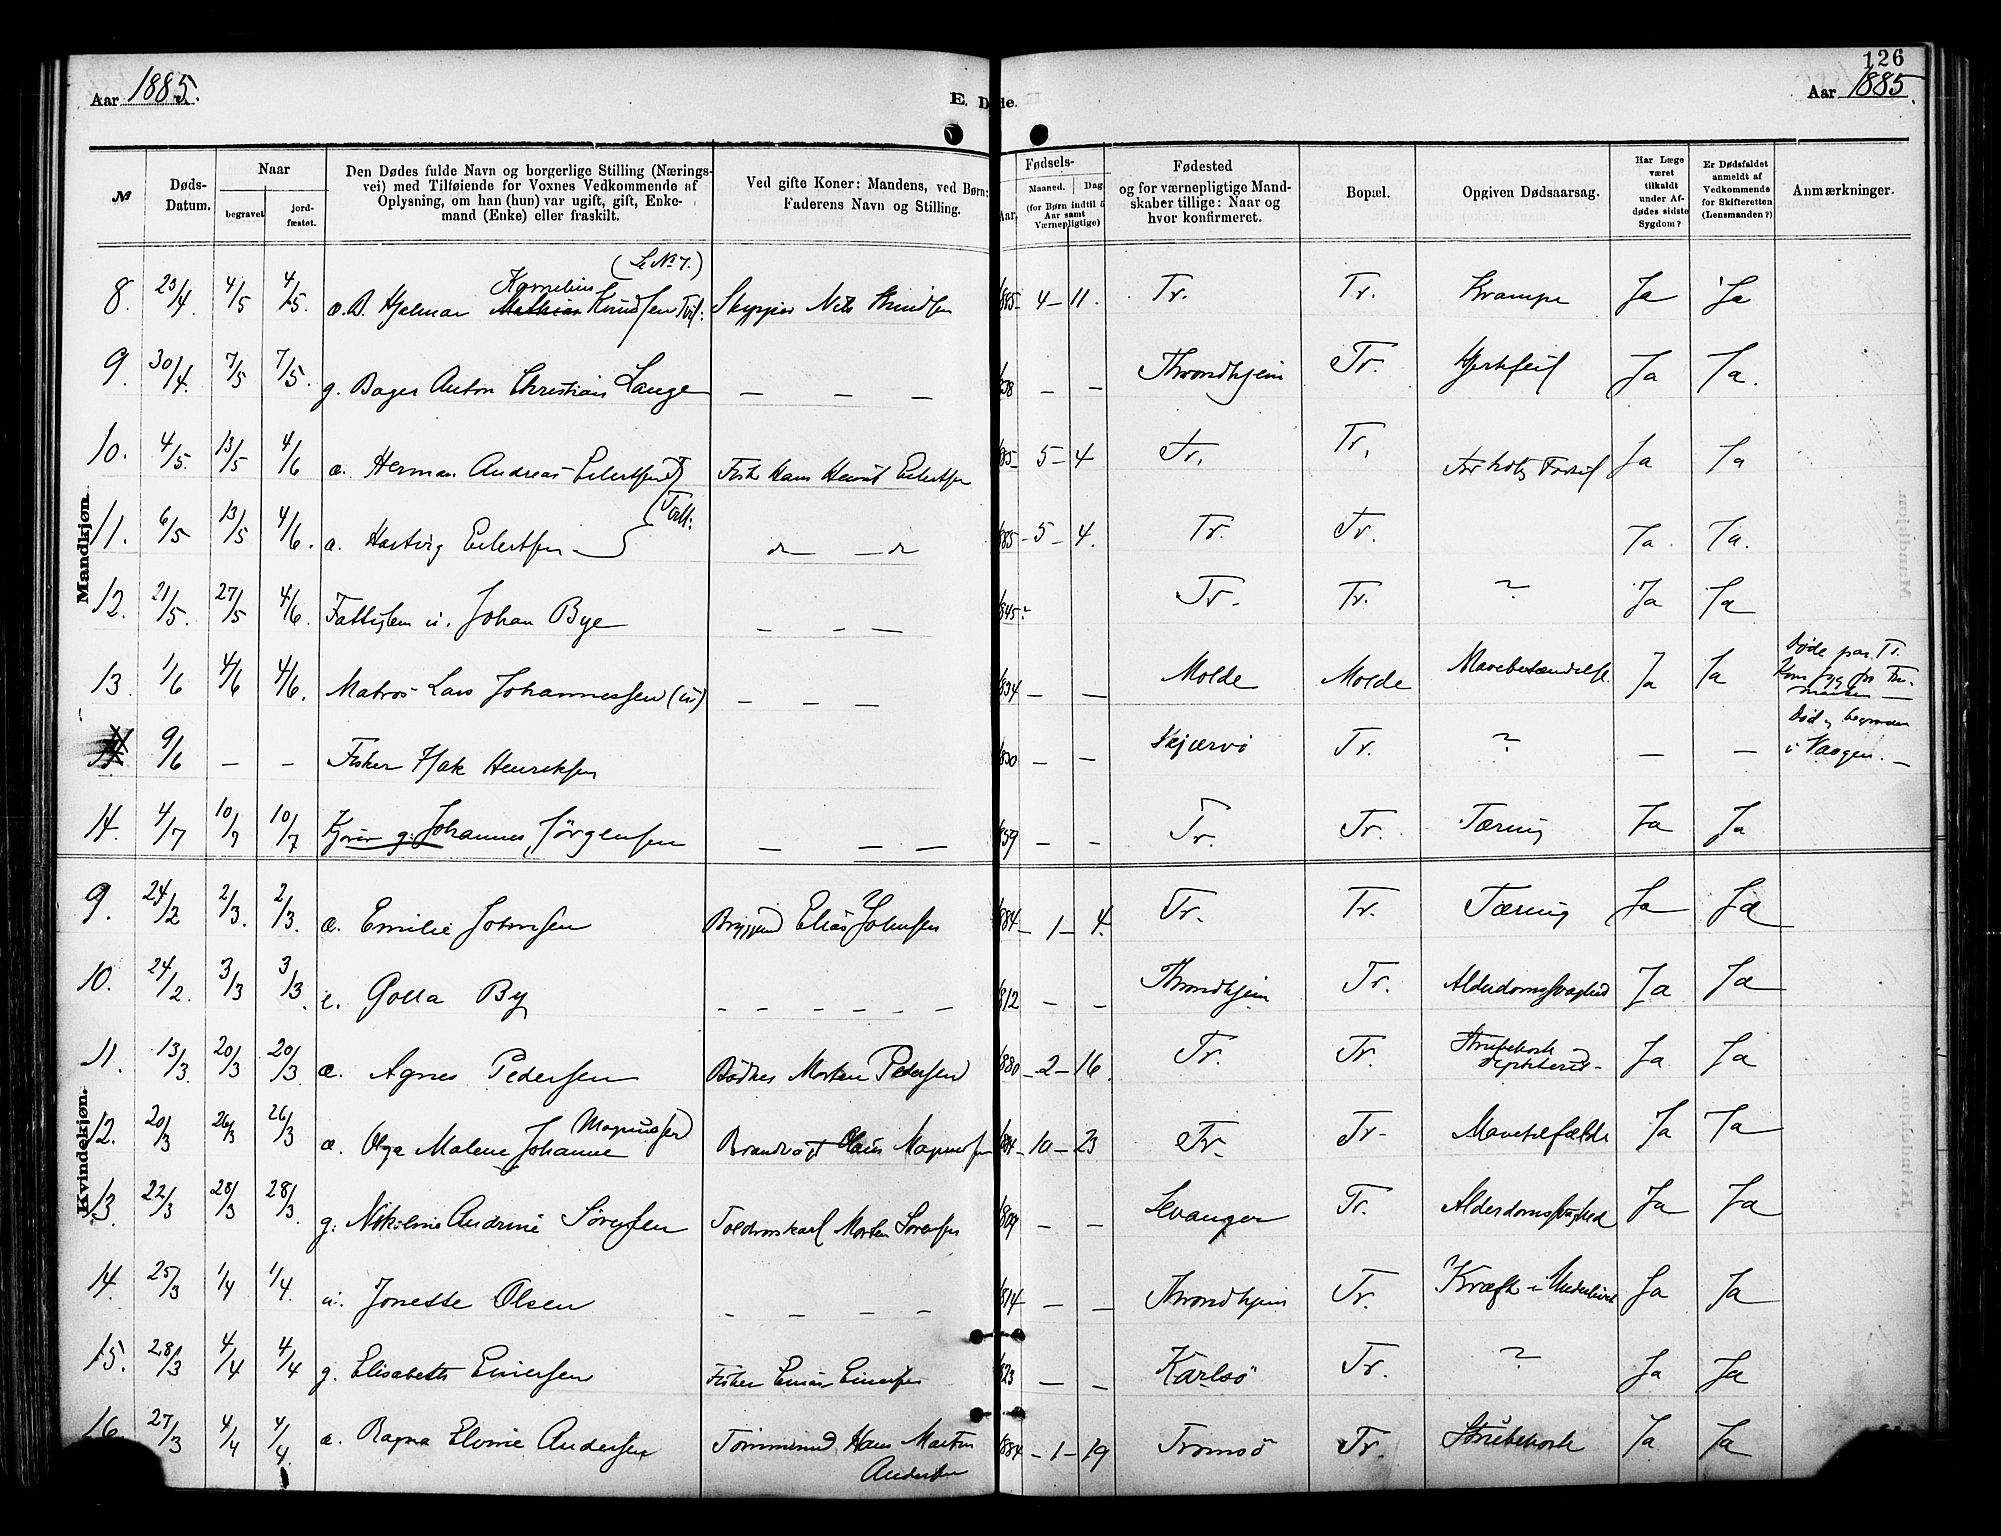 126
Aar 1885.
E. Døde.
Aar 1885.
№
Døds-Datum.
Naar
begravet
jord-fæstet.
Den Dødes fulde Navn og borgerlige Stilling (Nærings-
vei) med Tilføiende for Voxnes Vedkommende af
Oplysning, om han (hun) var ugift, gift, Enke-
mand (Enke) eller fraskilt.
Ved gifte Koner: Mandens, ved Børn:
Faderens Navn og Stilling.
Fødsels-
Aar.
Maaned.
Dag
(for Børn indtil 5
Aar samt
Værnepligtige)
Fødested
og for værnepligtige Mand-
skaber tillige: Naar og
hvor konfirmeret.
Bopæl.
Opgiven Dødsaarsag.
Har Læge
været
tilkaldt
under Af-
dødes sidste
Sygdom?
Er Dødsfaldet
anmeldt af
Vedkommende
for Skifteretten
(Lensmanden?)
Anmærkninger.
Mandkjøn.
(Se No 7.)
Kornelius
8. 23/4 4/5 4/5. æ. B. Hjalmar Mathias Knudsen Tvil: Skipper Nils Knudsen 1885 - 4 - 11. Tr. Tr. Krampe Ja Ja
9. 30/4. 7/5 7/5. g. Bager Anton Christian Lange — — — 1838 — — Throndhjem Tr. Hjertefeil Ja Ja.
10. 4/5. 13/5 4/6 æ. Herman Andreas Eilertsen Fisker Hans Henrik Eilertsen 1885 - 5 - 4 Tr. Tr. For tidlig Fødsel Ja Ja
Tvill:
11. 6/5 13/5 4/6. æ. Hartvig Eilertsen do — do 1885 - 5 - 4. Tr. Tr. Ja. Ja.
12. 21/5. 27/5 4/6. Fattiglem u. Johan Bye — — — 1845? Tr. Tr. ? Ja Ja
13. 1/6 4/6 4/6. Matros Lars Johannessen (u) — — — 1834 — — Molde Molde Mavebetændelse. Ja Ja Døde paa Tr.
Kom syg fra
9/6 — — Fisker Isak Henriksen 1830 — — Skjærvö Tr. ? — — Død og begraven
i Vaagen. —
14. 4/7 10/7 10/7 g. Johannes Jørgensen — — — 1859 — — Tr. Tr. Tæring Ja Ja
Kvindekjøn.
9. 24/2 2/3. 2/3. æ. Emilie Johnsen Elias Johnsen 1884 - 1 - 4. Tr. Tr. Tæring Ja Ja
10. 24/2. 3/3 3/3. e. Golla By — — — — — — 1812 — — Throndhjem Tr. Alderdomssvaghed Ja Ja
11. 13/3. 20/3 20/3 æ. Agnes Pedersen Bødker Morten Pedersen 1880 - 2 - 16. Tr. Tr. Strubehoste
Ja Ja
Magnussen
12. 20/3 26/3 26/3 æ. Olga Malene Johanne Brandvagt Olaus Magnussen 1884 - 10 - 23 Tr. Tr. Mavetilfælde Ja Ja
13. 22/3 28/3 28/3. g. Nikoline Andrine Sørensen Toldrorskarl Morten Sørensen — — Levanger Tr. Alderdomssvaghed Ja Ja
14. 25/3 1/4 1/4. u. Jonette Olsen — — — — 1814 — — Throndhjem Tr. Kræft i Underlivet Ja Ja
15. 28/3 4/4 4/4 g. Elisabeth Einersen Fisker Einar Einersen 1823 — — Karlsö Tr. ? Ja Ja
16. 27/3 4/4 4/4. æ. Ragna Elvine Andersen Tømmermd Hans Martin
Andersen 1884 - 1 - 19 Tromsö Tr. Strubehoste Ja Ja